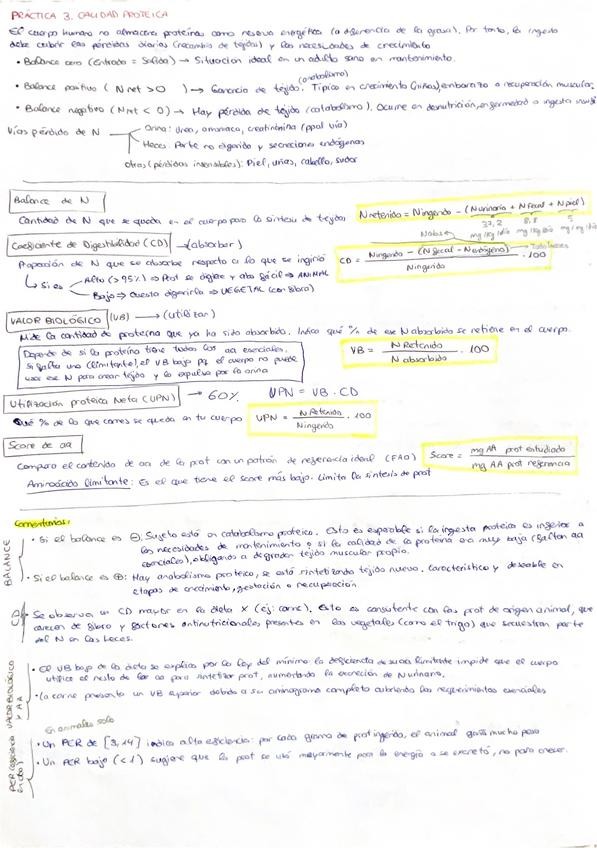 PRÁCTICA 3. CALIDAD PROTEICA
El cuerpo humano no almacena proteínas como reserva energética (a diferencia de la grasa). Por tanto, la ingesta
debe cubrir las pérdidas diarias (recambio de tejidos) y las necesidades de crecimiento
• Balance cero (Entrada = Salida) → Situación ideal en un adulto sano en mantenimiento.
(anabolismo)
• Balance positivo (N net > 0) → Ganancia de tejido. Típico en crecimiento (niños), embarazo o recuperación muscular.
• Balance negativo (N net < 0) → Hay pérdida de tejido (catabolismo). Ocurre en desnutrición, enfermedad o ingesta
Vías pérdida de N
Orina: Urea, amoniaca, creatinina (ppal vía)
Heces: Parte no digerida y secreciones endógenas
Otras (pérdidas insensibles): Piel, uñas, cabello, sudor
Balance de N
Cantidad de N que se queda en el cuerpo para la síntesis de tejidos
N retenido = N ingerido - (N urinario + N fecal + N piel)
37,2 8,8 5
mg/kg/día mg/kg/día mg/kg/día
Coeficiente de Digestibilidad (CD) → (absorber)
Proporción de N que se absorbe respecto a lo que se ingirió
CD = N ingerido - (N fecal - N endógeno) / N ingerido · 100
↳ Si es Alto (> 95%) ⇒ Prot se digiere y abs fácil ⇒ ANIMAL
Bajo ⇒ Cuesta digerirla ⇒ VEGETAL (con fibra)
VALOR BIOLÓGICO (VB) → (utilizar)
Mide la cantidad de proteína que ya ha sido absorbida. Indica qué % de ese N absorbido se retiene en el cuerpo.
Depende de si la proteína tiene todos los aa esenciales.
Si falta uno (limitante), el VB baja pq el cuerpo no puede
usar ese N para crear tejido y lo expulsa por la orina
VB = N Retenido / N absorbido · 100
Utilización proteica Neta (UPN) → 60% UPN = VB · CD
Qué % de lo que comes se queda en tu cuerpo
UPN = N Retenido / N ingerido · 100
Score de aa
Compara el contenido de aa de la prot con un patrón de referencia ideal (FAO)
Score = mg AA prot estudiada / mg AA prot referencia
Aminoácido limitante: Es el que tiene el score más bajo. Limita la síntesis de prot
Comentarios:
BALANCE
• Si el balance es ⊖: Sujeto está en catabolismo proteico. Esto es esperable si la ingesta proteica es inferior a
las necesidades de mantenimiento o si la calidad de la proteína era muy baja (faltan aa
esenciales), obligando a degradar tejido muscular propio.
• Si el balance es ⊕: Hay anabolismo proteico, se está sintetizando tejido nuevo. Característico y deseable en
etapas de crecimiento, gestación o recuperación.
CD
• Se observa un CD mayor en la dieta X (ej: carne). Esto es consistente con las prot de origen animal, que
carecen de fibra y factores antinutricionales, presentes en los vegetales (como el trigo) que secuestran parte
del N en las heces.
VALOR BIOLÓGICO Y AA
• El VB bajo de la dieta se explica por la ley del mínimo: la deficiencia de su aa limitante impide que el cuerpo
utilice el resto de los aa para sintetizar prot, aumentando la excreción de N urinario.
• La carne presenta un VB superior debido a su aminograma completo cubriendo los requerimientos esenciales
En animales solo
PER
• Un PER de [3,14] indica alta eficiencia: por cada gramo de prot ingerida, el animal ganó mucho peso
• Un PER bajo (<1) sugiere que la prot se usó mayormente para la energía o se excretó, no para crecer.